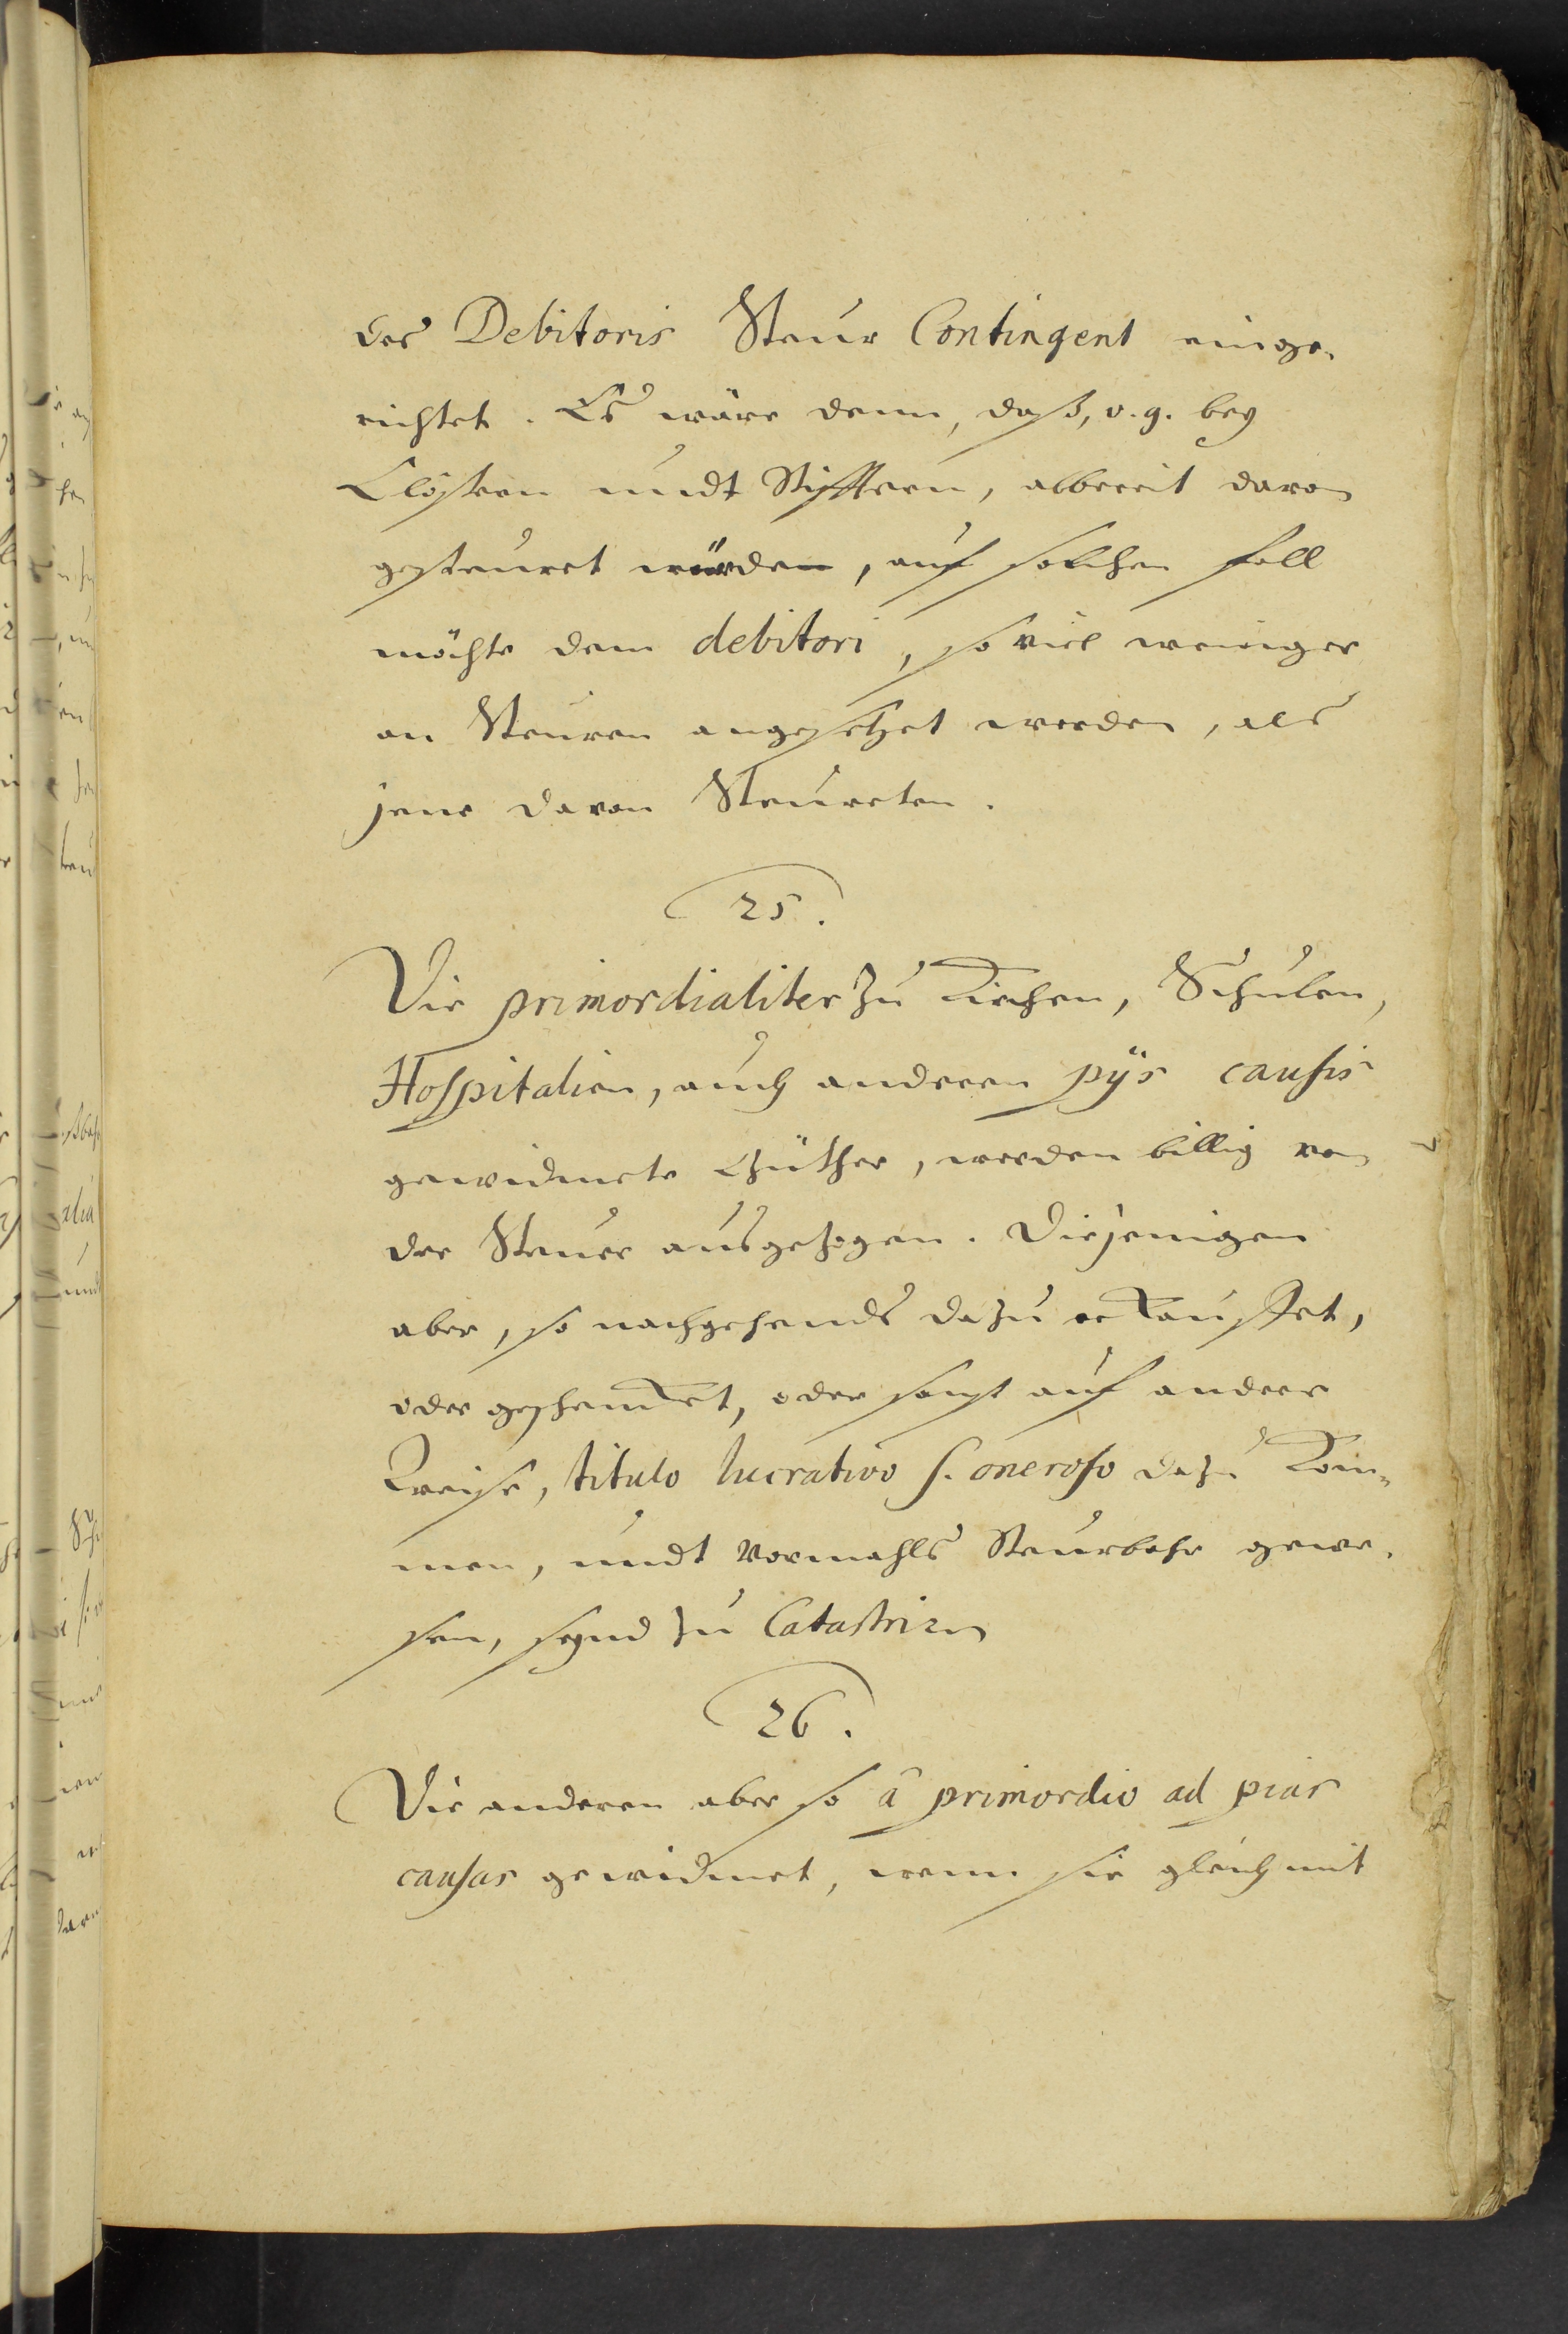 des Debitoris Steur Contingent einge-
richtet. Es wäre denn, daß, v. g. bey
Clöstern undt Stifftern, allbereit davon
gesteuret würden, auf solchen fall
möchte dem debitori, so viel weniger
an Steuren angesetzet werden, als
jene davon Steureten.
25.
Die primordialiter zu Kirchen, Schulen,
Hospitalien, auch anderen pijs causis
gewidmete Güther, werden billig von
der Steuer ausgezogen. Diejenigen
aber, so nachgehends dazu erkauffet,
oder geschencket, oder sonst auf andere
Weise, titulo lucrativo s. oneroso dazu kom-
men, undt vormahls Steurbahr gewe-
sen, seynd zu Catastriren
26.
Die anderen aber so â primordio ad pias
causas gewidmet, wenn sie gleich mit